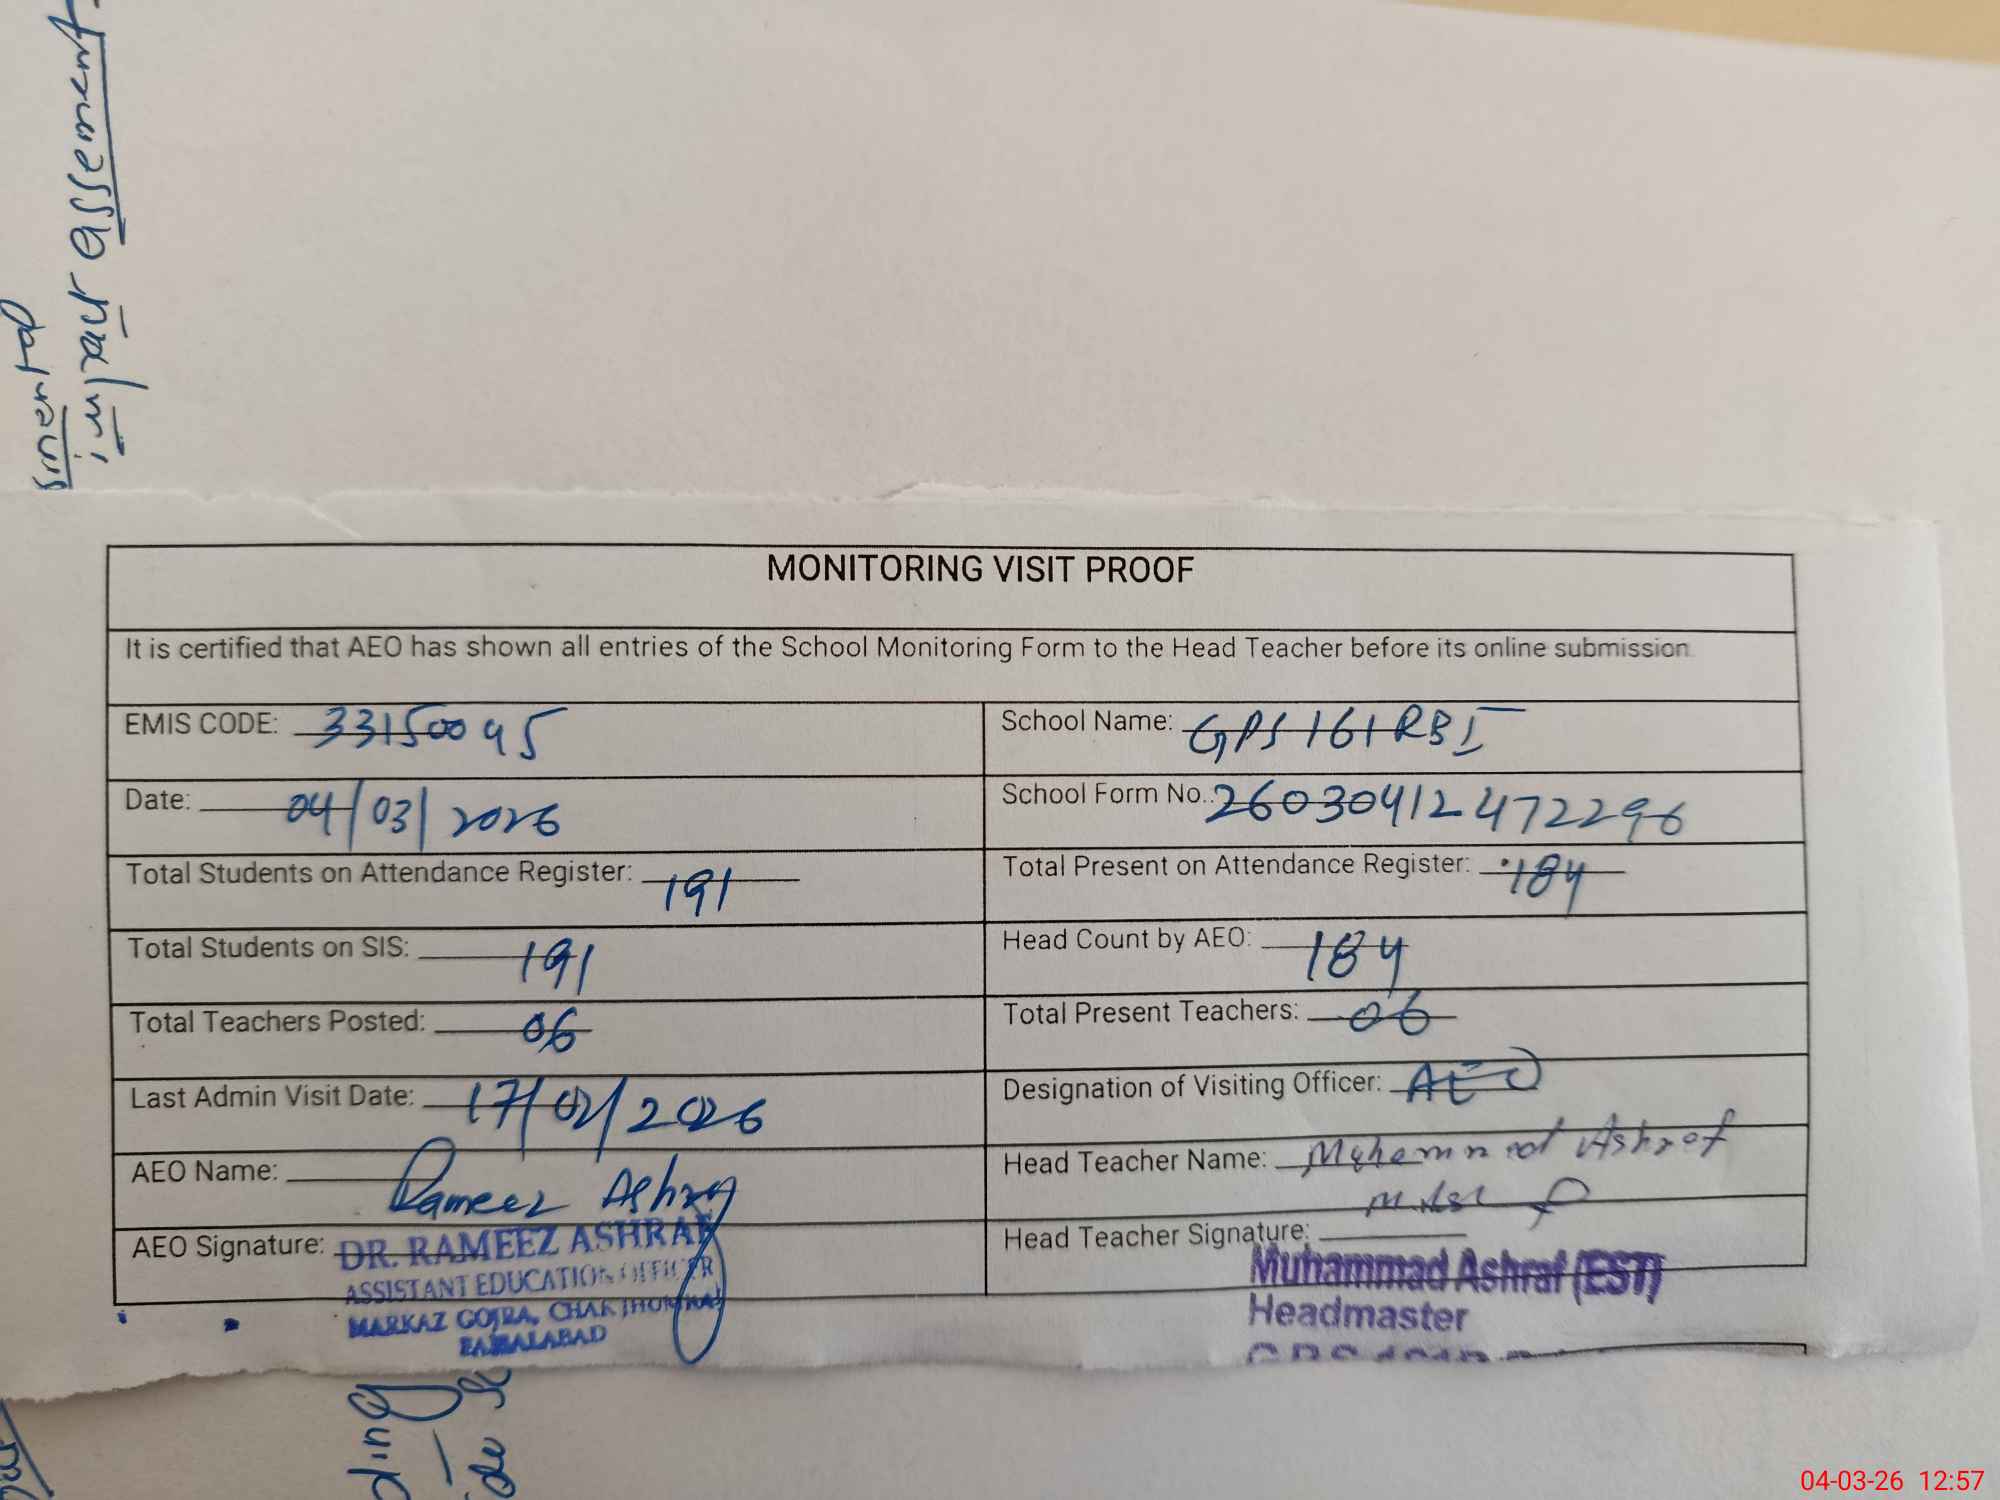 impact assement
MONITORING VISIT PROOF
It is certified that AEO has shown all entries of the School Monitoring Form to the Head Teacher before its online submission.
EMIS CODE: 33150095
School Name: GPS 161 RB I
Date: 04/03/2026
School Form No.: 26030412472296
Total Students on Attendance Register: 191
Total Present on Attendance Register: 184
Total Students on SIS: 191
Head Count by AEO: 184
Total Teachers Posted: 06
Total Present Teachers: 06
Last Admin Visit Date: 17/02/2026
Designation of Visiting Officer: AEO
AEO Name: Rameez Ashraf
Head Teacher Name: Muhammad Ashraf
AEO Signature:
DR. RAMEEZ ASHRAF
ASSISTANT EDUCATION OFFICER
MARKAZ GOJRA, CHAK JHUMRA
FAISALABAD
Head Teacher Signature:
Muhammad Ashraf (EST)
Headmaster
04-03-26 12:57